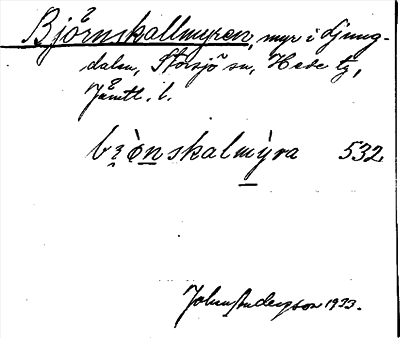 Björnskallmyren, myr i Ljung-
dalen, Storsjö sn, Hede tg,
Jämtl. l.
bi̯ònskalmỳra 532.
Johan Anderson 1933.